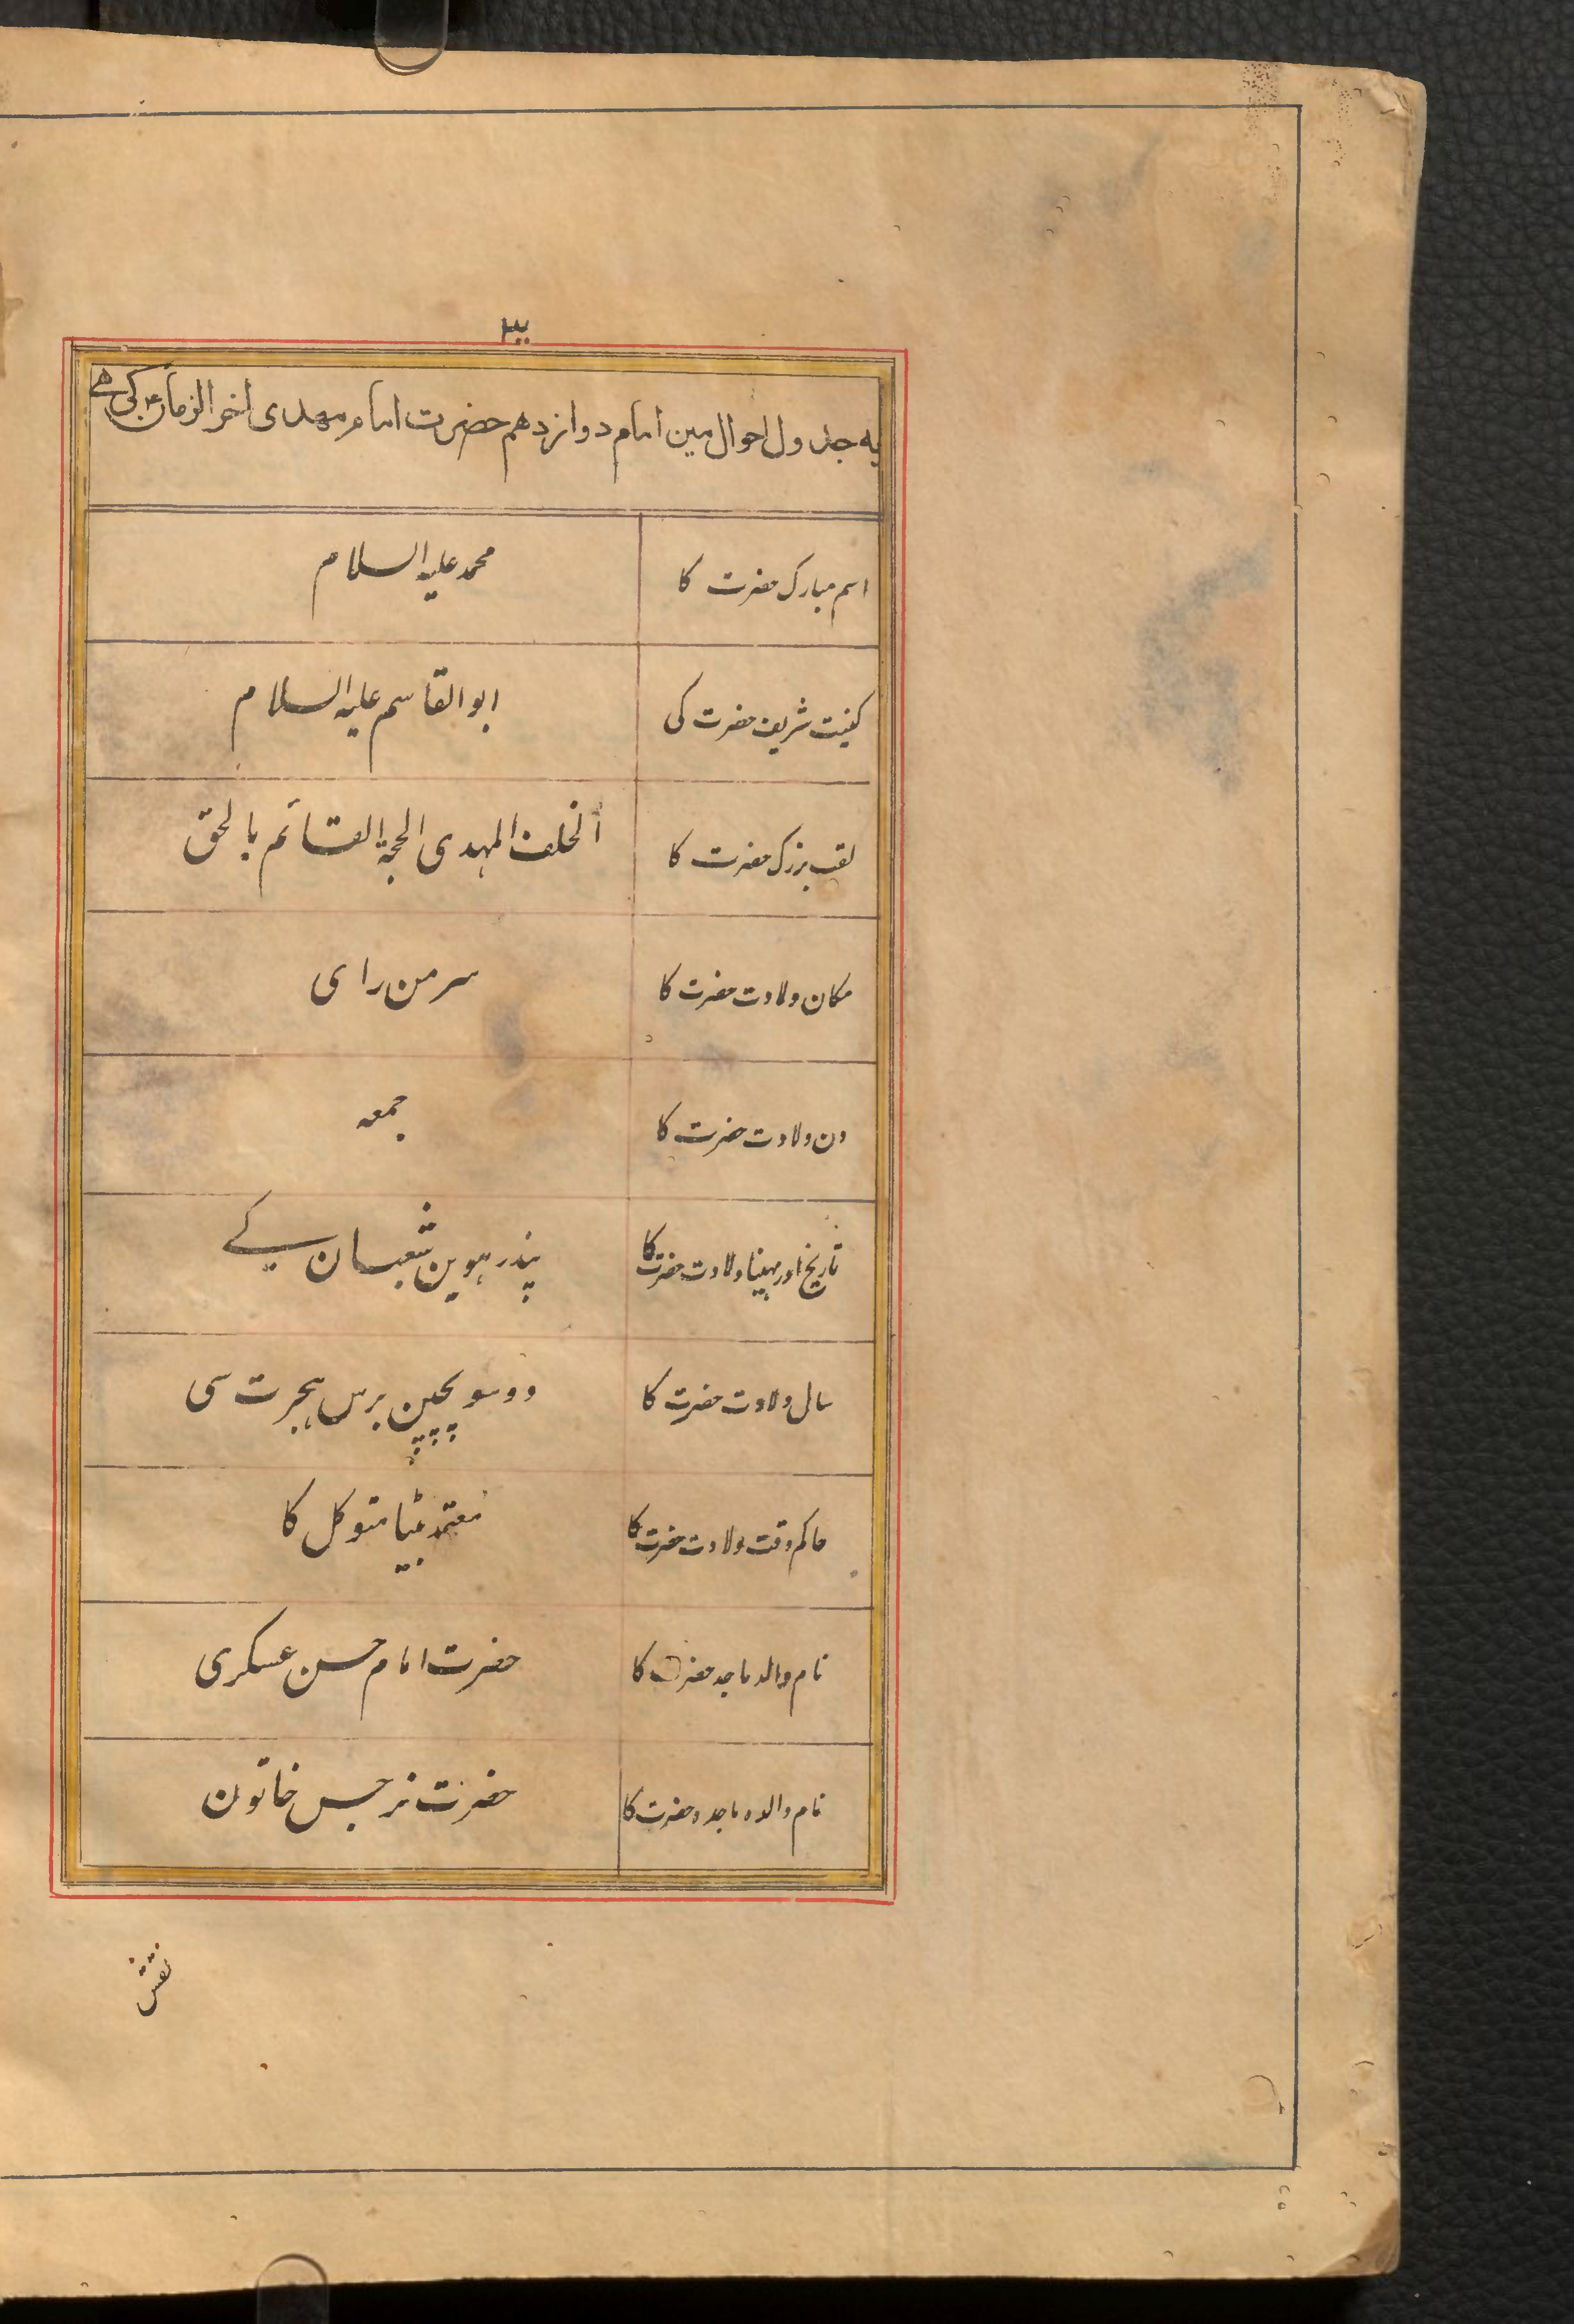 یہ جدول احوال مین امام دوازدهم حضرت امام مهدی اخر الزمانؑ کی ہے
اسم مبارک حضرت کا محمد علیہ السلام
کنیت شریف حضرت کی ابو القاسم علیہ السلام
لقب بزرک حضرت کا الخلف المہدی الحجۃ القائم بالحق
مکان ولادت حضرت کا سر من رای
دن ولادت حضرت کا جمعہ
تاریخ اور مہینا ولادت حضرت کا پندرہوین شعبان کے
سال ولادت حضرت کا دو سو پچپن برس ہجرت سی
حاکم وقت ولادت حضرت کا معتمد بیٹا متوکل کا
نام والد ماجد حضرت کا حضرت امام حسن عسکری
نام والدہ ماجدہ حضرت کا حضرت نرجس خاتون
نقش